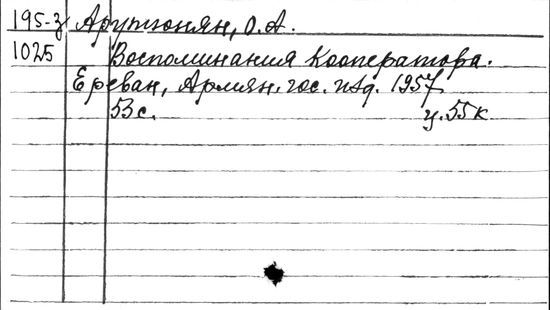 195-з Арутюнян, О.А.
1025 Воспоминания кооператора.
Ереван, Армян. гос. изд. 1957
53 с. ц. 55 к